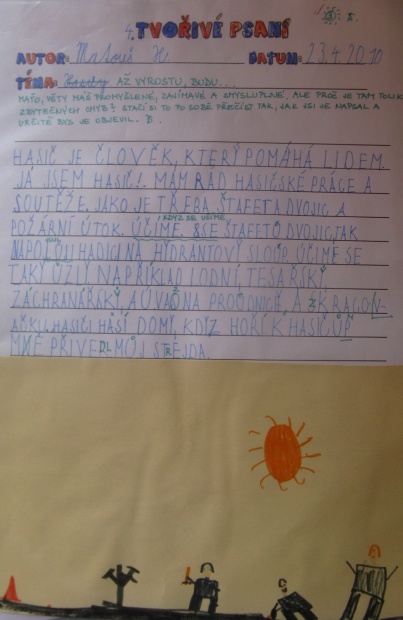 4. TVOŘIVÉ PSANÍ
AUTOR: Matouš H. DATUM: 23.4.2010
TÉMA: AŽ VYROSTU, BUDU...
MAŤO, VĚTY MÁŠ PROMYŠLENÉ, ZAJÍMAVÉ A SMYSLUPLNÉ, ALE PROČ JE TAM TOLIK
ZBYTEČNÝCH CHYB? STAČÍ SI TO PO SOBĚ PŘEČÍST TAK, JAK JSI JE NAPSAL A
URČITĚ BYS JE OBJEVIL. D.
HASIČ JE ČLOVĚK, KTERÝ POMÁHÁ LIDEM.
JÁ JSEM HASIČ!. MÁM RÁD HASIČSKÉ PRÁCE A
SOUTĚŽE, JAKO JE TŘEBA ŠTAFETA DVOJIC A
I KDYŽ SE UČÍME
POŽÁRNÍ ÚTOK. ÚČÍME, SE ŠTAFETO DVOJIC JAK
HADICI NA HYDRANTOVÝ SLOUP. ÚČÍME SE
TAKY ÚZLY NAPŘÍKLAD LODNÍ TESAŘSKÝ
ZÁCHRANÁŘSKÝ, A
HASIČI HASÍ DOMY, KDYŽ HOŘÍ. K HASIČŮM
MNĚ PŘIVEDL MŮJ STREJDA.